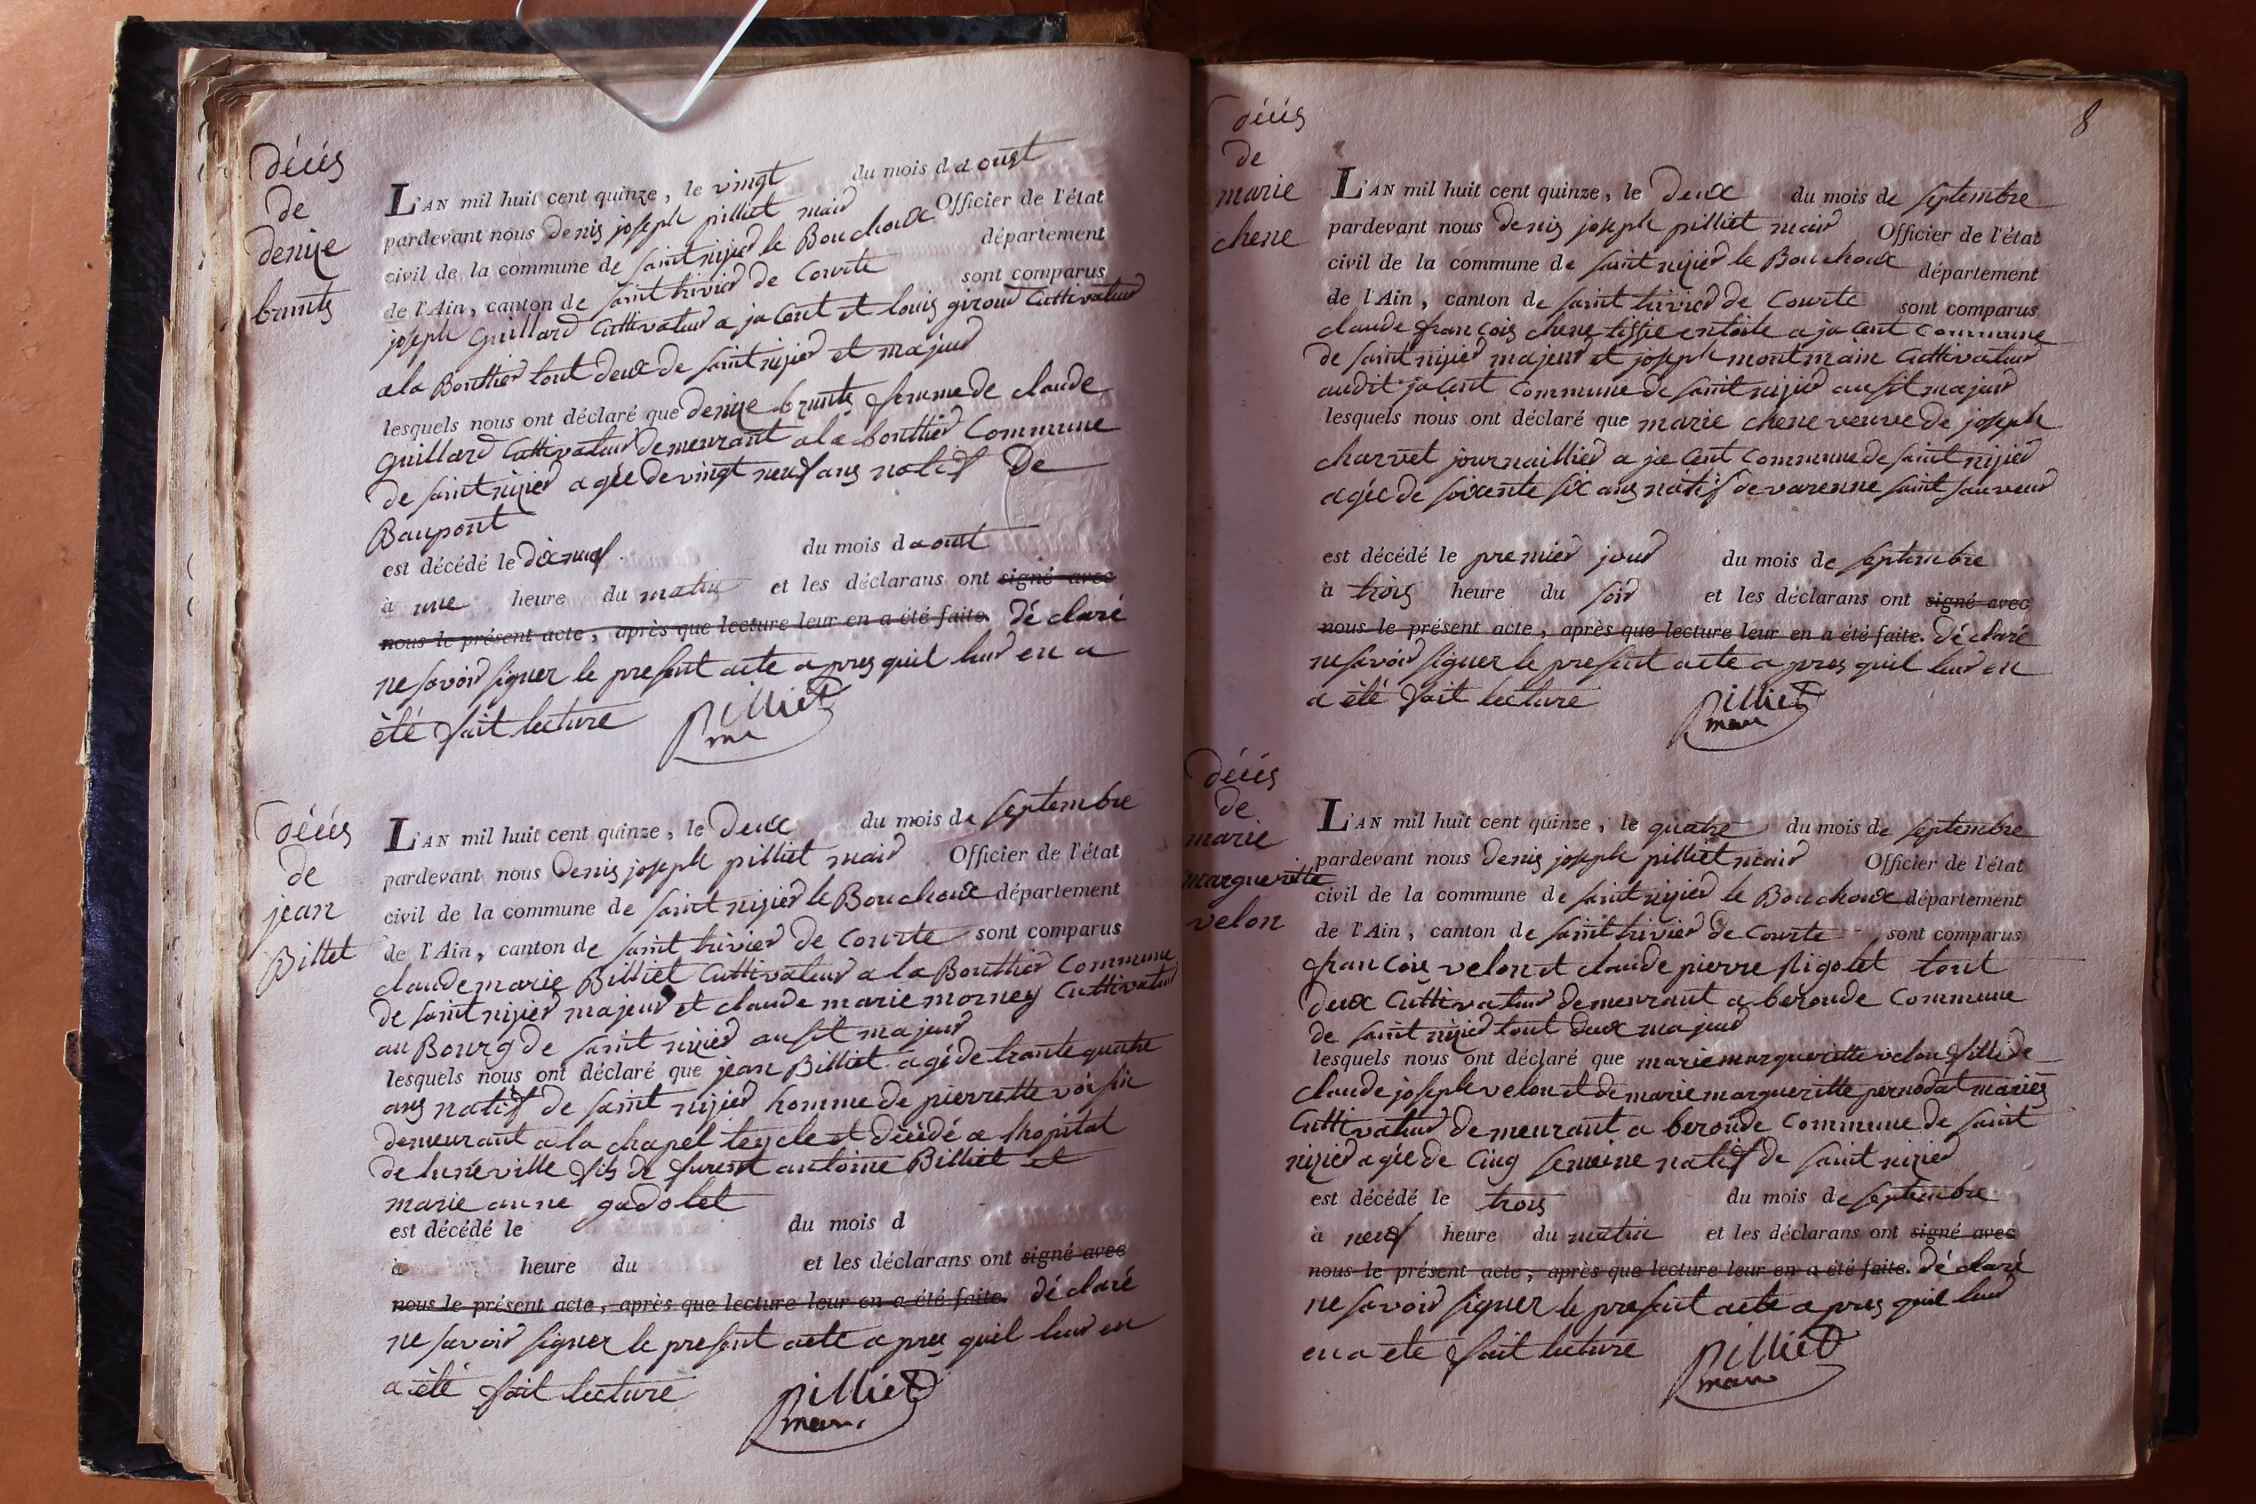 décés
de
denise
brunts
L'AN mil huit cent quinze, le vingt du mois d aoust
pardevant nous denis joseph pilliet maid Officier de l'état
civil de la commune de saint nizied le Bouchoux département
de l'Ain, canton de saint trivied de Courte sont comparus
joseph Guillard Cultivateur a jaCent et louis giroud Cultivateur
a la Bouttier tout deux de saint nizied et majeur
lesquels nous ont déclaré que denise brunte femme de claude
Guillard Cultivateur demeurant a la bouttier Commune
de saint nizied agée de vingt neuf ans natif De
Baupont
est décédé le dix neuf du mois d aout
à une heure du matin et les déclarans ont signé avec
nous le présent acte, après que lecture leur en a été faite. dé claré
ne savoir signer le present acte apres quil leur en a
été fait lecture Pilliet
décés
de
jean
Billet
L'AN mil huit cent quinze, le deux du mois de septembre
pardevant nous denis joseph pilliet maid Officier de l'état
civil de la commune de saint nizied le Bouchoux département
de l'Ain, canton de saint trivied de Courte sont comparus
claude marie Billiet Cultivateur a la Bouttier Commune
de saint nizied majeur et claude marie morney Cultivateur
au Bourg de saint nizied ausit majeur
lesquels nous ont déclaré que jean Billiet agé de trante quatre
ans natif de saint nizied homme de pierrette voisin
demeurant a la chapel teycle et décédé a lhopital
de luneville fils de furent antoine Billiet et
marie anne gadolet
est décédé le du mois d
à heure du et les déclarans ont signé avec
nous le présent acte, après que lecture leur en a été faite. dé claré
ne savoir signer le present acte apres quil leur en
a été fait lecture Pilliet
maire
8
décés
de
marie
chene
L'AN mil huit cent quinze, le deux du mois de septembre
pardevant nous denis joseph pilliet maid Officier de l'état
civil de la commune de saint nizied le Bouchoux département
de l'Ain, canton de saint trivied de Courte sont comparus
claude françois chene tissie en toile a jaCent Commune
de saint nizied majeur et joseph montmain Cultivateur
audit jaCent Commune de saint nizied ausit majeur
lesquels nous ont déclaré que marie chene veuve de joseph
charvet journaillied a jaCent Commune de saint nizied
agée de soixente six ans natif de varenne saint sauveur
est décédé le premied jour du mois de septembre
à trois heure du soir et les déclarans ont signé avec
nous le présent acte, après que lecture leur en a été faite. dé claré
ne savoir signer le present acte apres quil leur en
a été fait lecture Pilliet
maire
décés
de
marie
margueritte
velon
L'AN mil huit cent quinze, le quatre du mois de septembre
pardevant nous denis joseph pilliet maid Officier de l'état
civil de la commune de saint nizied le Bouchoux département
de l'Ain, canton de saint trivied de Courte sont comparus
françois velon et claude pierre Rigolet tout
deux Cultivateur demeurant a beroude Commune
de saint nizied tout deux majeur
lesquels nous ont déclaré que marie margueritte velon fille de
claude joseph velon et de marie margueritte pernodat mariés
Cultivateur demeurant a beroude Commune de saint
nizied agée de Cinq semeine natif de saint nizied
est décédé le trois du mois de septembre
à neuf heure du matin et les déclarans ont signé avec
nous le présent acte, après que lecture leur en a été faite. dé claré
ne savoir signer le present acte apres quil leur
en a ete fait lecture Pilliet
maire